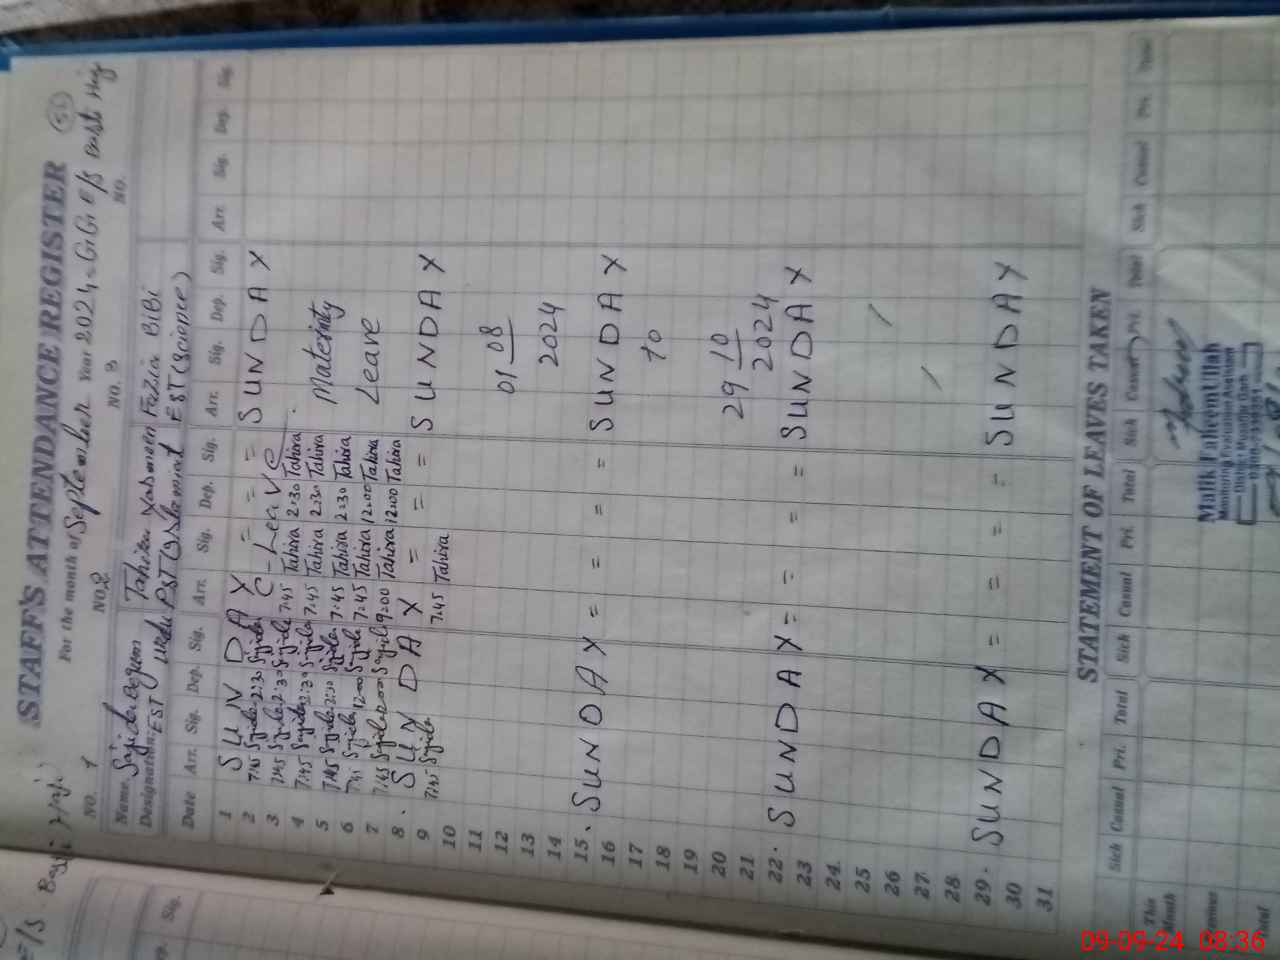 STAFF'S ATTENDANCE REGISTER
For the month of September Year 2024
NO. 1 NO. 2 NO. 3 NO.
Name Sajida Begum Tahira Yasmeen Fozia BiBi
Designation EST Urdu PST EST (Science)
Date Arr. Sig. Dep. Sig. Arr. Sig. Dep. Sig. Arr. Sig. Dep. Sig. Arr. Sig. Dep. Sig.
1 SUNDAY = = = SUNDAY
2 7:45 Sajida 2:30 Sajida C-Leave
3 7:45 Sajida 2:30 Sajida 7:45 Tahira 2:30 Tahira
4 7:45 Sajida 2:30 Sajida 7:45 Tahira 2:30 Tahira Maternity
5 7:45 Sajida 2:30 Sajida 7:45 Tahira 2:30 Tahira
6 Sajida 12:00 Sajida 7:45 Tahira 12:00 Tahira Leave
7 7:45 Sajida 12:00 Sajida 9:00 Tahira 12:00 Tahira
8. SUNDAY = = = SUNDAY
9 7:45 Sajida 7:45 Tahira
10
11 01 08
12
13 2024
14
15. SUNDAY = = = = SUNDAY
16
17 to
18
19
20 29 10
21 2024
22. SUNDAY = = = = SUNDAY
23
24
25
26
27
28
29. SUNDAY = = = = SUNDAY
30
31
STATEMENT OF LEAVES TAKEN
Sick Casual Pri. Total Sick Casual Pri. Total Sick Casual Pri. Total Sick Casual Pri. Total
This Month
Total
Malik Faheem Ullah
Monitoring Evaluation Assistant
09-09-24 08:36